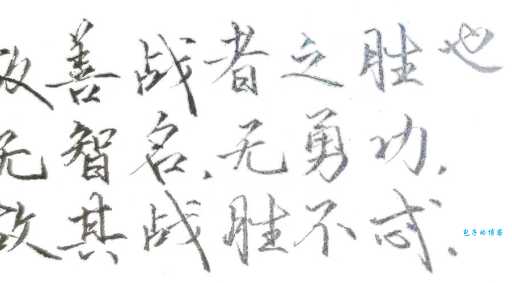 故善战者之胜也
无智名,无勇功,
故其战胜不忒.
包子的博客